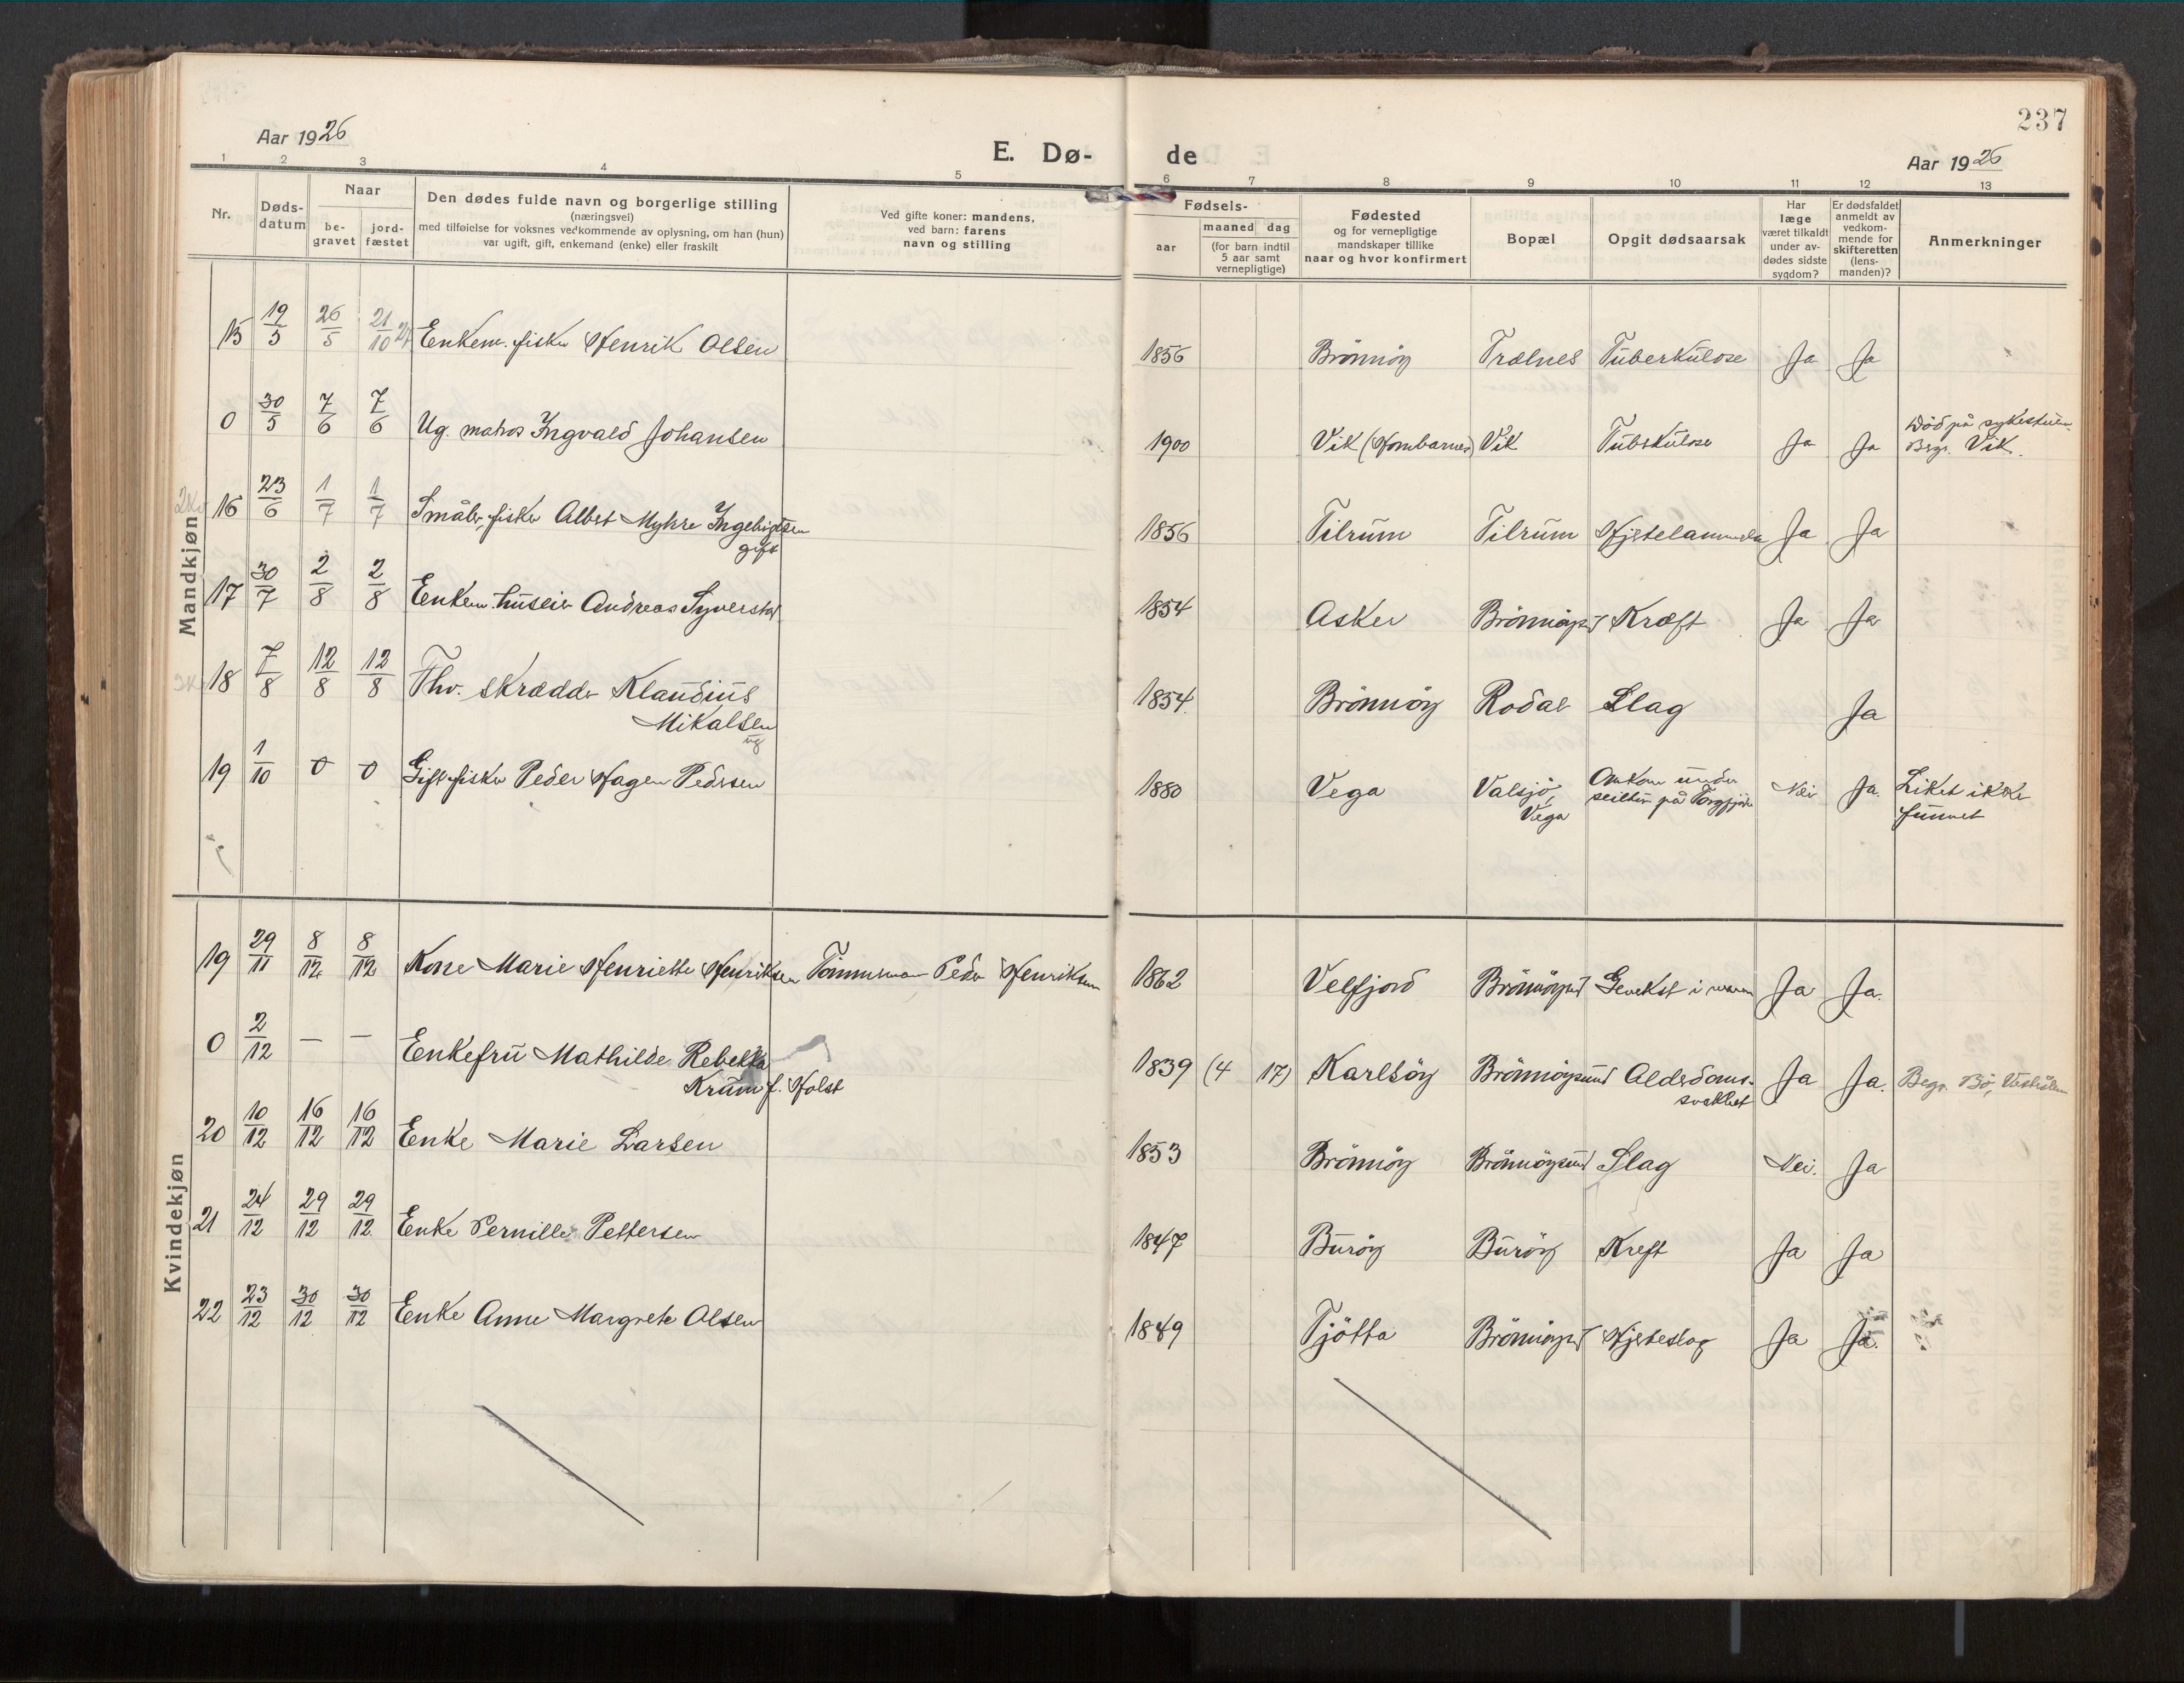 237
Aar 1926
E. Dø-
de
Aar 1926
1 2 3 4 5 6 7 8 9 10 11 12 13
Nr.
Døds-
datum
Naar
be-
gravet
jord-
fæstet
Den dødes fulde navn og borgerlige stilling
(næringsvei)
med tilføielse for voksnes vedkommende av oplysning, om han (hun)
var ugift, gift, enkemand (enke) eller fraskilt
Ved gifte koner: mandens,
ved barn: farens
navn og stilling
Fødsels-
aar
maaned dag
(for barn indtil
5 aar samt
vernepligtige)
Fødested
og for vernepligtige
mandskaper tillike
naar og hvor konfirmert
Bopæl
Opgit dødsaarsak
Har
læge
været tilkaldt
under av-
dødes sidste
sygdom?
Er dødsfaldet
anmeldt av
vedkom-
mende for
skifteretten
(lens-
manden)?
Anmerkninger
Mandkjøn
15 19/5 26/5 21/10 Enkem. fisker Henrik Olsen 1856 Brönnöy Trælnes Tuberkulose Ja Ja
0 30/5 7/6 7/6 Ug. matros Ingvald Johansen 1900 Vik (Sombarnes) Vik Tubekulose Ja Ja Död på sykestuen.
Begr. Vik.
16 23/6 1/7 1/7 Småbr. fisker Albet Myhre Ingebrigtsen 1856 Tilrum Tilrum Hjertelammelse Ja Ja
gift
17 30/7 2/8 2/8 Enkem. huseier Andreas Syverstad 1854 Asker Brönnöysund Kræft Ja Ja
18 7/8 12/8 12/8 Fhv. skrædder Klaudius 1854 Brönnöy Rodal Slag Ja
Mikalsen
ug
19 1/10 0 0 Gift fisker Peder Hagen Pedersen 1880 Vega Valsjö, Omkom under Nei Ja. Liket ikke
Vega seilten på Torgfjorden funnet
Kvindekjøn
19 29/11 8/12 8/12 Kone Marie Henriette Henriksen Tömmerman Peder Henriksen 1862 Velfjord Brönnöysund Gevekst i Ja Ja.
0 2/12 — — Enkefru Mathilde Rebekka 1839 (4 17) Karlsöy Brönnöysund Alderdoms- Ja Ja. Begr. Bö, Vesterålen
Krum f. Holst svakhet
20 10/12 16/12 16/12 Enke Marie Larsen 1853 Brönnöy Brönnöysund Slag Nei. Ja
21 24/12 29/12 29/12 Enke Pernille Pettersen 1847 Buröy Buröy Kreft Ja Ja
22 23/12 30/12 30/12 Enke Anne Margrete Olsen 1849 Tjötta Brönnöysund Hjerteslag Ja Ja.